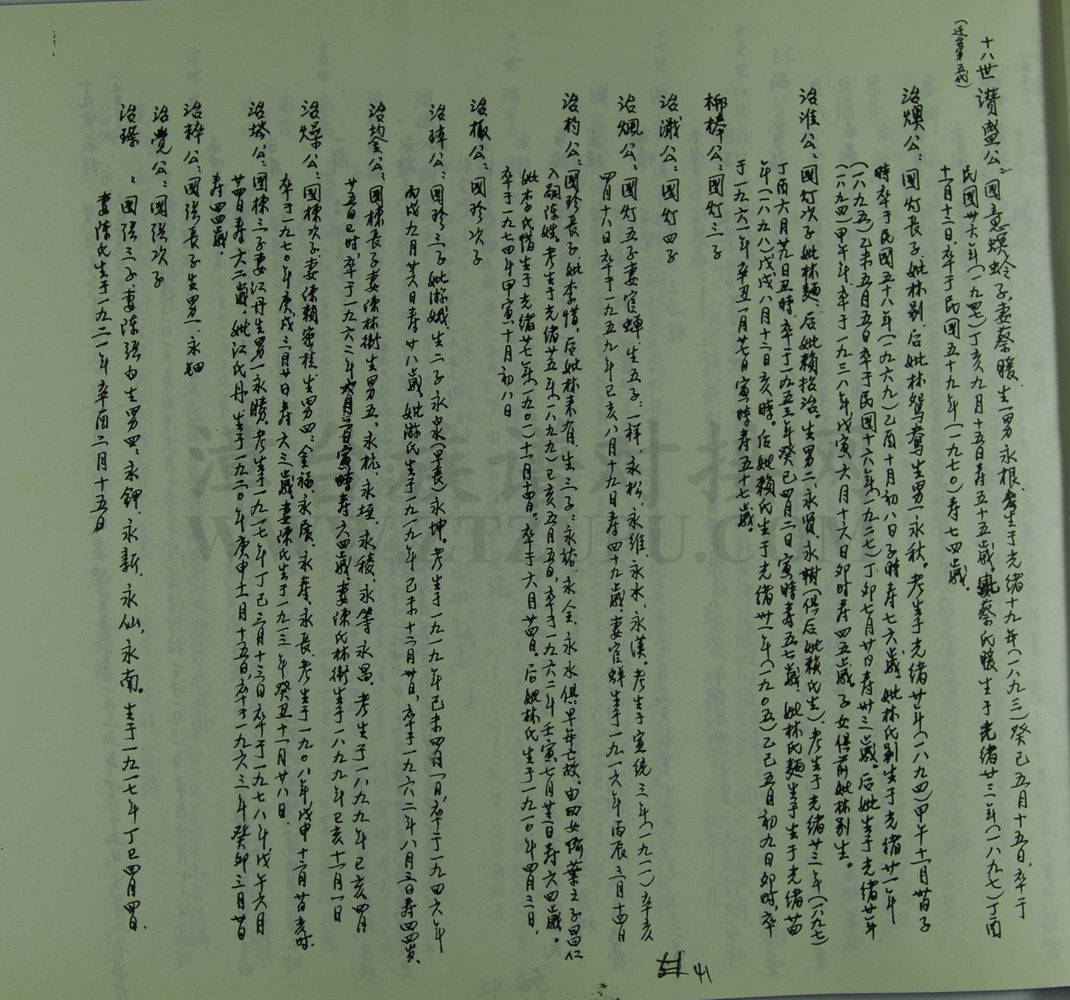 十八世 讚盛公：國意螟蛉子，妻蔡暖，生一男永根。考生于光緒十九年(一八九三)癸巳五月十五日，卒于
(遷台第五代)
民國卅六年(一九四七)丁亥九月十五日寿五十五歲。蔡氏暖生于光緒廿三年(一八九七)丁酉
十一月十二日，卒于民國五十九年(一九七〇)寿七四歲。
治煥公：國灯長子，妣林别，后妣林鴛鴦生男一永秋。考生于光緒廿年(一八九四)甲午十一月廿日子
時卒于民國五十八年(一九六九)乙酉十月初八日子時寿七六歲，妣林氏别生于光緒廿一年
(一八九五)乙未五月五日卒于民國十六年(一九二七)丁卯七月廿日寿卅三歲。后妣生于光緒廿年
(一八九四)甲午年，卒于一九三八年戊寅六月十六日卯時寿四五歲，子女俱前妣林别生。
治淮公：國灯次子，妣林麵，后妣賴拾治。生男二，永賢、永樹(俱后妣賴氏生)，考生于光緒廿三年(一八九七)
丁酉六月廿九日丑時，卒于一九五三年癸巳四月二日寅時寿五七歲，妣林氏麵生于光緒廿四
年(一八九八)戊戌八月十二日亥時。后妣賴氏生于光緒卅一年(一九〇五)乙巳五月初九日卯時，卒
于一九六一年辛丑一月廿七日寅時寿五十七歲。
柳棒公：國灯三子
治濺公：國灯四子
治颯公：國灯五子妻官蟬生五子：一祥，永松，永維，永水，永漢。考生于宣統三年(一九一一)辛亥
四月十八日，卒于一九五九年己亥八月十九日寿四十九歲，妻官蟬生于一九一六年丙辰三月十四日
治杓公：國珍長子，妣李惜，后妣林來有，生三子：永裕，永全，永水俱早年亡故。由四女傍葉之子昌仁
入嗣陳姓。考生于光緒廿五年(一八九九)己亥五月五日，卒于一九六二年壬寅七月廿一日寿六四歲。
妣李氏惜生于光緒廿七年(一九〇一)十一月十四日。卒于六月廿四日。后妣林氏生于一九一〇年四月三日，
卒于一九七四年甲寅十月初八日
治板公：國珍次子
治瑋公：國珍三子，妣游娥，生二子，永泉(早喪)永坤。考生于一九一九年己未四月一日，卒于一九四六年
丙戌九月廿六日寿廿八歲，妣游氏生于一九一九年己未十二月廿日，卒于一九六二年八月三日寿四四歲。
治鋆公：國棟長子妻陳林衛生男五，永杭，永垣，永稜，永等，永昌，考生于一八九九年己亥四月
廿五日巳時，卒于一九六二年六月二日寅時寿六四歲，妻陳氏林衛生于一八九九年己亥十一月一日
治燥公：國棟次子妻陳賴蜜桂生男四：金福，永展，永寿，永長，考生于一九〇八年戊申十二月廿日亥時
卒于一九七〇年庚戌三月廿日寿六三歲妻陳氏生于一九一三年癸丑十一月廿八日。
治塔公：國棟三子妻江丹生男一永勝。考生于一九一七年丁巳三月十三日卒于一九七八年戊午六月
廿四日寿六二歲，妣江氏丹生于一九二〇年庚申十一月十五日，卒于一九六三年癸卯三月廿日
寿四四歲。
治粹公：國張長子生男一，永細
治覺公：國張次子
治琛：國張三子，妻陳張白生男四，永鉀，永新，永仙，永南。生于一九一七年丁巳四月四日，
妻陳氏生于一九二一年辛酉二月十五日
41